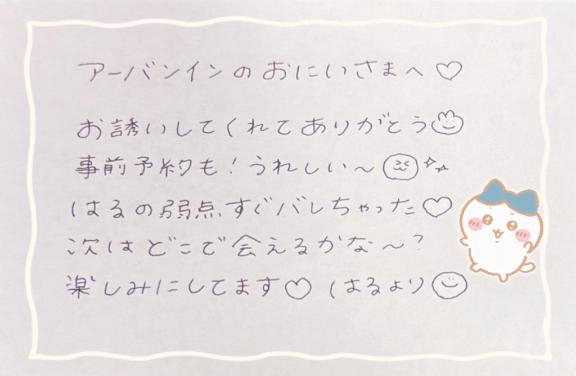 アーバンインのおにいさまへ♡
お誘いしてくれてありがとう
事前予約も！うれしい〜
はるの弱点すぐバレちゃった♡
次はどこで会えるかな〜？
楽しみにしてます♡ はるより